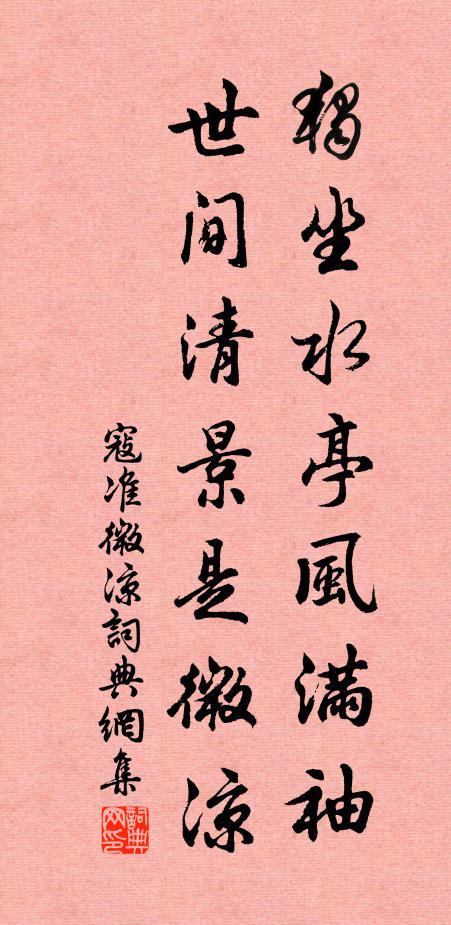 獨坐水亭風滿袖
世间清景是微涼
寇准微涼詞典網集
詞典网印